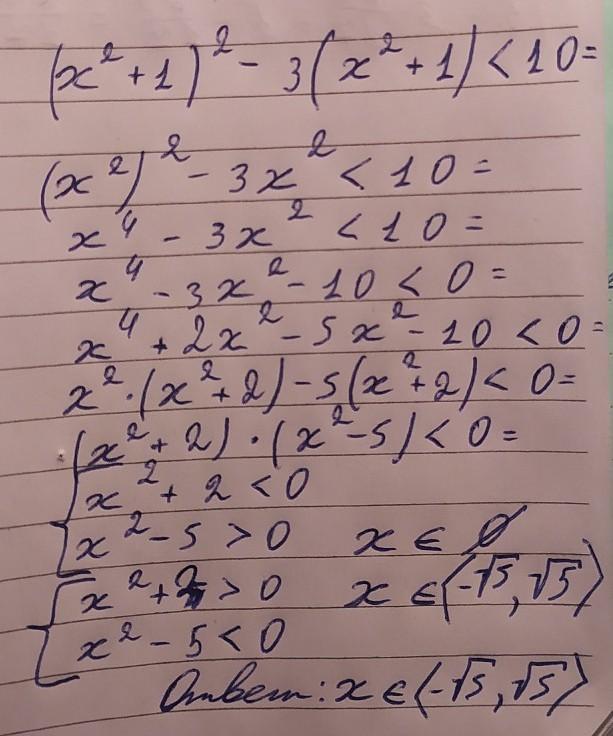 (x² + 1)² - 3(x² + 1) < 10 =
(x²)² - 3x² < 10 =
x⁴ - 3x² < 10 =
x⁴ - 3x² - 10 < 0 =
x⁴ + 2x² - 5x² - 10 < 0 =
x² · (x² + 2) - 5(x² + 2) < 0 =
(x² + 2) · (x² - 5) < 0 =
{ x² + 2 < 0
x² - 5 > 0 x ∈ ∅
{ x² + 2 > 0 x ∈ ⟨-√5, √5⟩
x² - 5 < 0
Ответ: x ∈ ⟨-√5, √5⟩